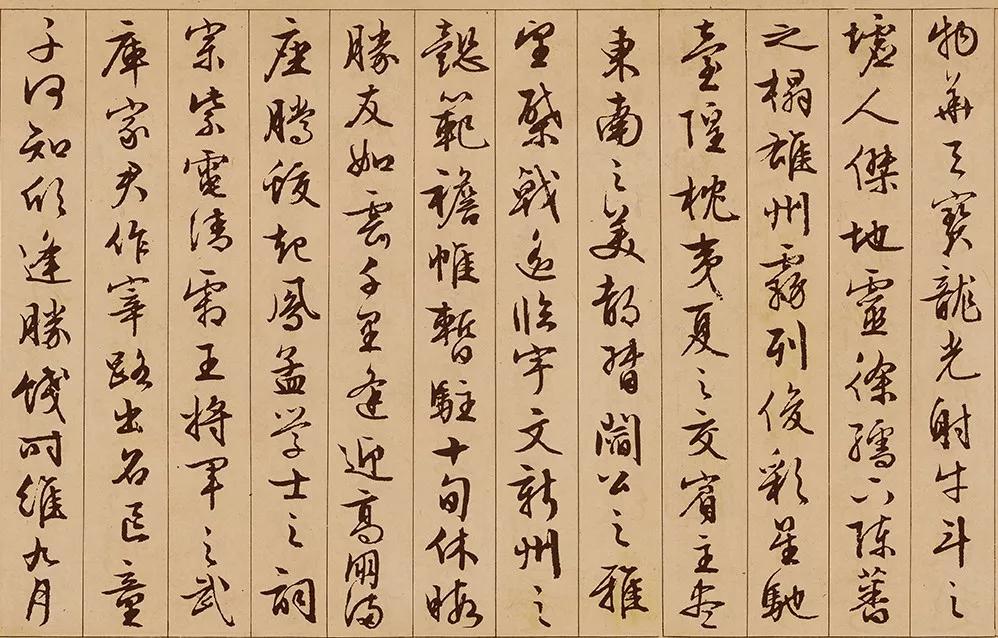 物華天寶龍光射牛斗之
墟人傑地靈徐孺下陳蕃
之榻雄州霧列俊彩星馳
臺隍枕夷夏之交賓主盡
東南之美都督閻公之雅
望棨戟遙臨宇文新州之
懿範襜帷暫駐十旬休暇
勝友如雲千里逢迎高朋滿
座騰蛟起鳳孟學士之詞
宗紫電清霜王將軍之武
庫家君作宰路出名區童
子何知欣逢勝餞時維九月